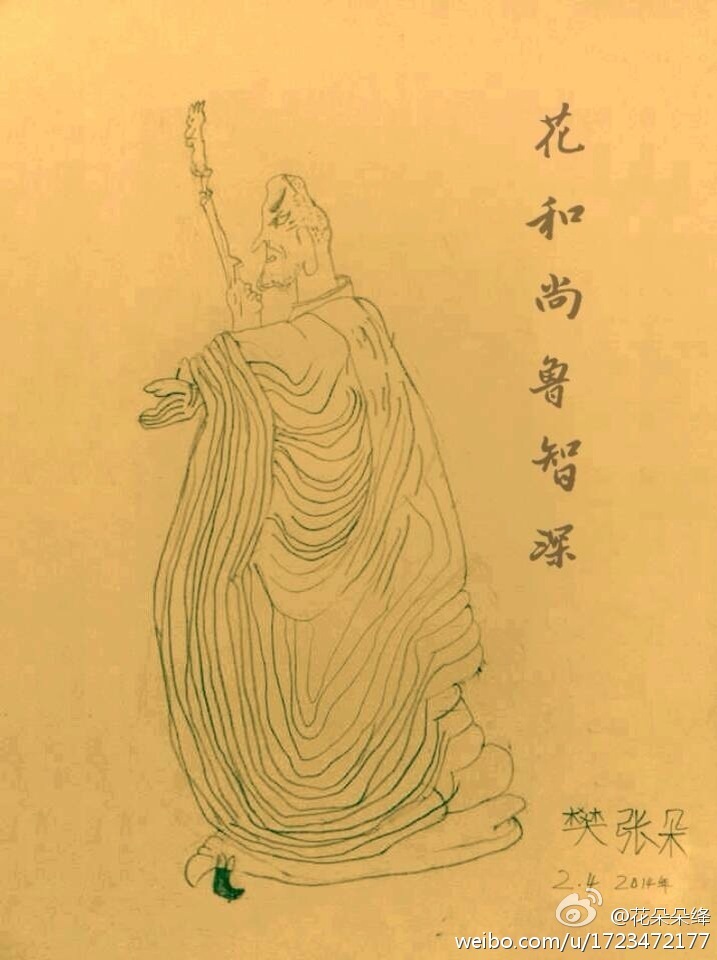 花和尚鲁智深
樊张朵
2.4 2014年
@花朵朵绛
weibo.com/u/1723472177